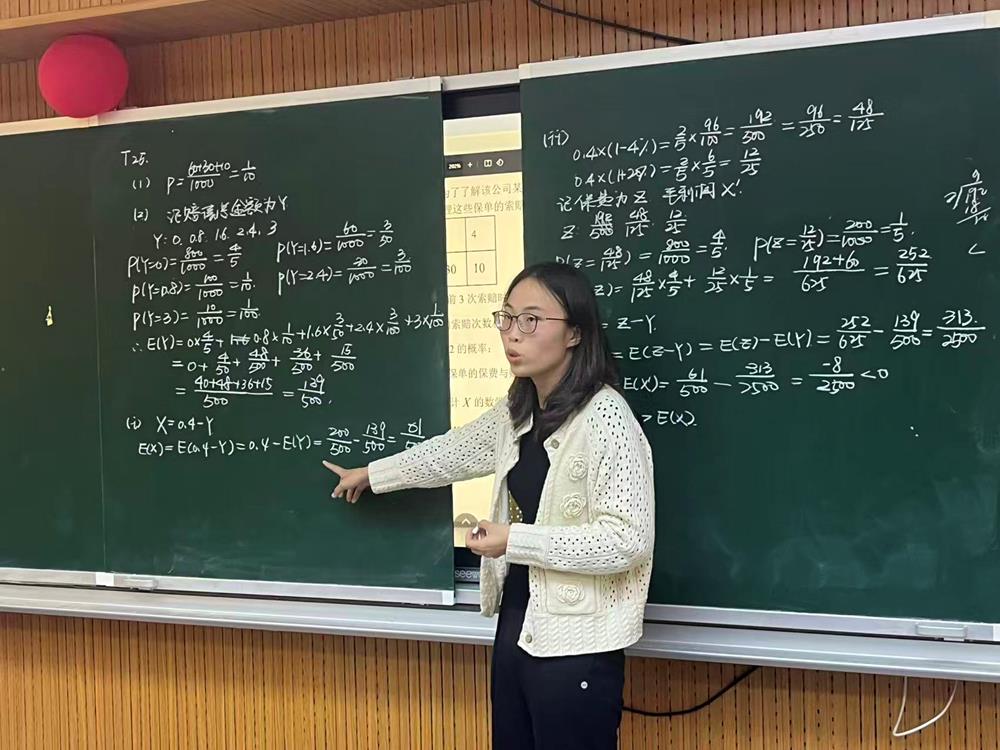 T25.
(1) P=\frac{60+30+10}{1000}=\frac{1}{10}
(2) 记赔偿总金额为Y
Y: 0, 0.8, 1.6, 2.4, 3
P(Y=0)=\frac{800}{1000}=\frac{4}{5} P(Y=1.6)=\frac{60}{1000}=\frac{3}{50}
P(Y=0.8)=\frac{100}{1000}=\frac{1}{10}. P(Y=2.4)=\frac{30}{1000}=\frac{3}{100}
P(Y=3)=\frac{10}{1000}=\frac{1}{100}.
∴ E(Y)=0×\frac{4}{5}+0.8×\frac{1}{10}+1.6×\frac{3}{50}+2.4×\frac{3}{100}+3×\frac{1}{100}
=0+\frac{4}{50}+\frac{48}{500}+\frac{36}{500}+\frac{15}{500}
=\frac{40+48+36+15}{500}=\frac{139}{500}.
(i) X=0.4-Y
E(X)=E(0.4-Y)=0.4-E(Y)=\frac{200}{500}-\frac{139}{500}=\frac{61}{5
为了了解该公司某
理这些保单的索赔
4
30 10
前3次索赔时
索赔次数
2的概率；
保单的保费与
计X的数学
seewo
(ii)
0.4×(1-4%)=\frac{2}{5}×\frac{96}{100}=\frac{192}{500}=\frac{96}{250}=\frac{48}{125}
0.4×(1+20%)=\frac{2}{5}×\frac{6}{5}=\frac{12}{25}
记保费为Z 毛利润X'.
Z: \frac{192}{500} \frac{48}{125} \frac{12}{25}
P(Z=\frac{48}{125})=\frac{800}{1000}=\frac{4}{5}. P(Z=\frac{12}{25})=\frac{200}{1000}=\frac{1}{5}.
Z)=\frac{48}{125}×\frac{4}{5}+\frac{12}{25}×\frac{1}{5}=\frac{192+60}{625}=\frac{252}{625}
=Z-Y.
=E(Z-Y)=E(Z)-E(Y)=\frac{252}{625}-\frac{139}{500}=\frac{313}{2500}
E(X)=\frac{61}{500}-\frac{313}{2500}=\frac{-8}{2500}<0
>E(X).